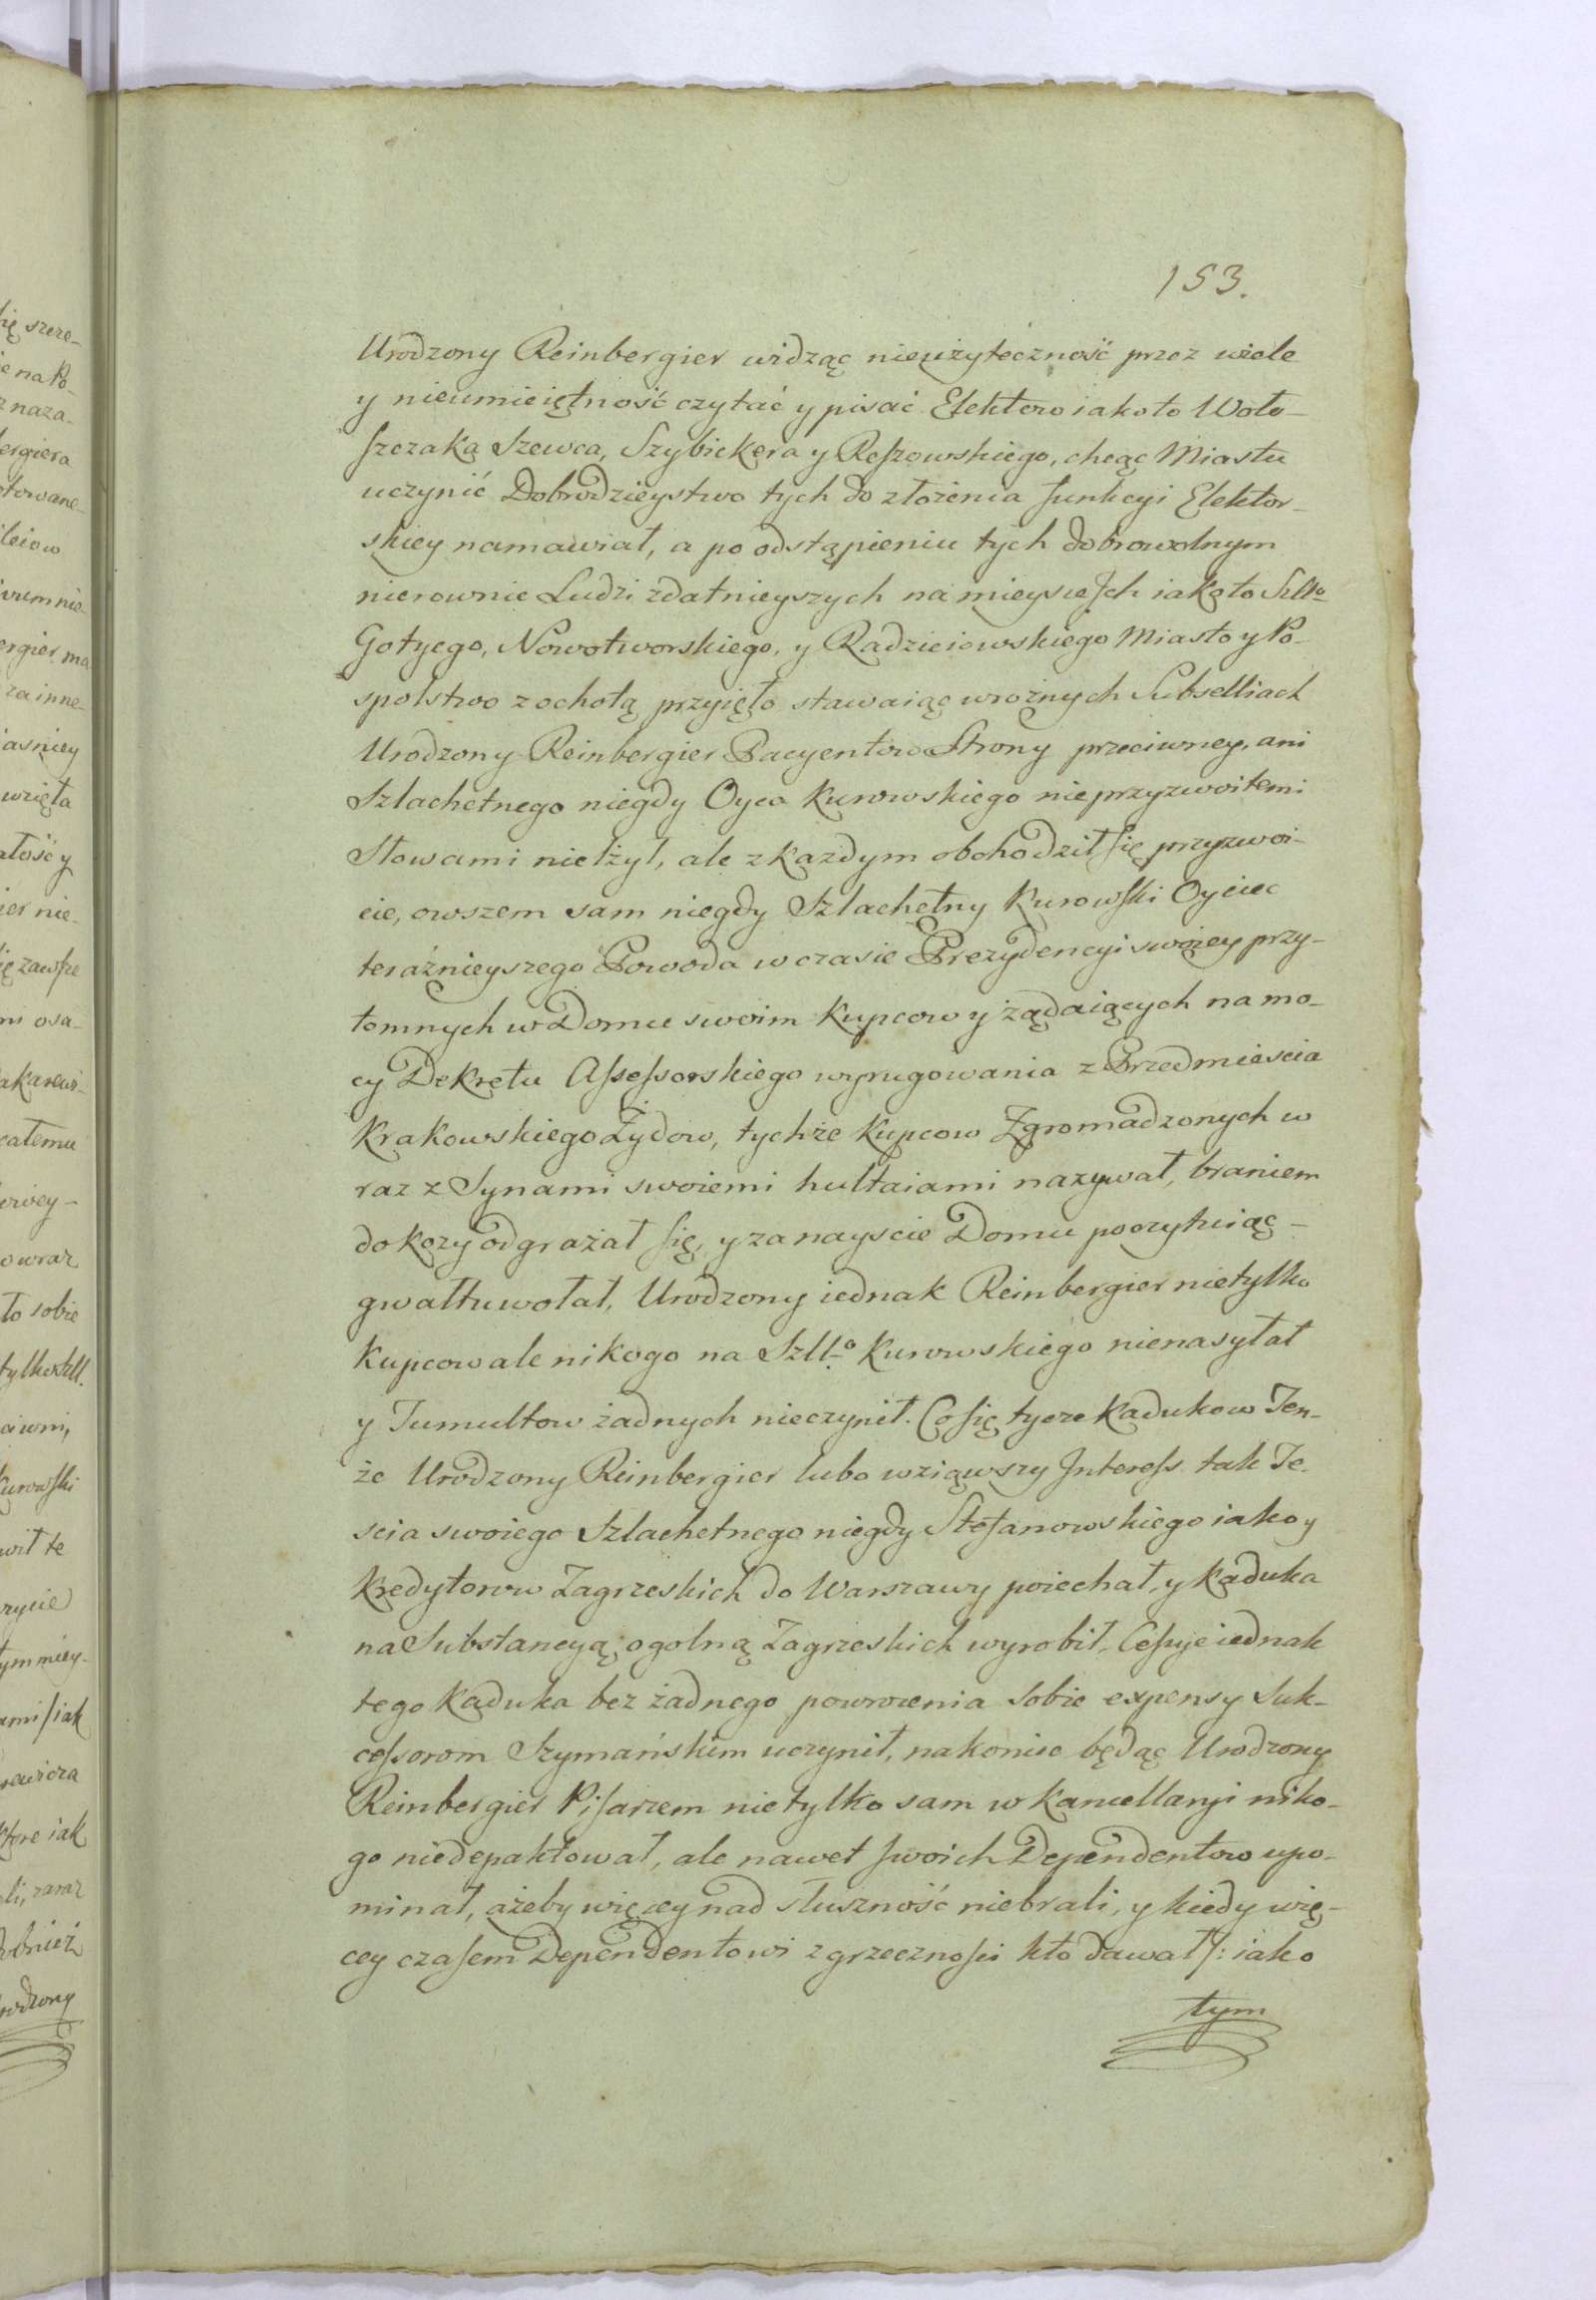 153.
Urodzony Reinbergier widząc nieużyteczność przez wiele
y nieumieiętność czytać y pisać Elektorow iakoto Woło-
szczaka Szewca, Szybickera y Reszowskiego, chcąc Miastu
uczynić Dobrodzieystwo tych do złożenia funkcyi Elektor-
skiey namawiał, a po odstąpieniu tych dobrowolnym
nierownie Ludzi zdatnieyszych na mieysce Ich iakoto Szllo
Gotyego, Nowotworskiego, y Radzieiowskiego Miasto y Po-
spolstwo z ochotą przyięło stawaiąc w rożnych Subselliach
Urodzony Reinbergier Pacyentow Strony przeciwney, ani
Szlachetnego niegdy Oyca Kurowskiego nieprzyzwoitemi
Słowami nielżył, ale z każdym obchodził się przyzwoi-
cie, owszem sam niegdy Szlachetny Kurowski Oyciec
teraźnieyszego Powoda w czasie Prezydencyi swoiey przy-
tomnych w Domu swoim Kupcow y żądaiących na mo-
cy Dekretu Assessorskiego wyrugowania z Przedmieścia
Krakowskiego Żydow, tychże Kupcow Zgromadzonych w
raz z Synami swoiemi hultaiami nazywał, braniem
do kozy odgrażał się, y za nayscie Domu poczytuiąc
gwałtu wołał, Urodzony iednak Reinbergier nietylko
Kupcow ale nikogo na Szllo Kurowskiego nienasyłał
y Tumultow żadnych nieczynił. Co się tycze Kadukow Ten-
że Urodzony Reinbergier lubo wziąwszy Interess tak Te-
scia swoiego Szlachetnego niegdy Stefanowskiego iako y
Kredytorow Zagrzeskich do Warszawy poiechał, y Kaduka
na Substancyą ogolną Zagrzeskich wyrobił, Cessye iednak
tego Kaduka bez żadnego powrocenia sobie expensy Suk-
cessorom Szymańskim uczynił, nakoniec będąc Urodzony
Reinbergier Pisarzem nietylko sam w Kancellaryi niko-
go niedepaktował, ale nawet swoich Dependentow upo-
minał, ażeby więcey nad słuszność niebrali, y kiedy wię-
cey czasem Dependentowi z grzeczności kto dawał /: iako
tym